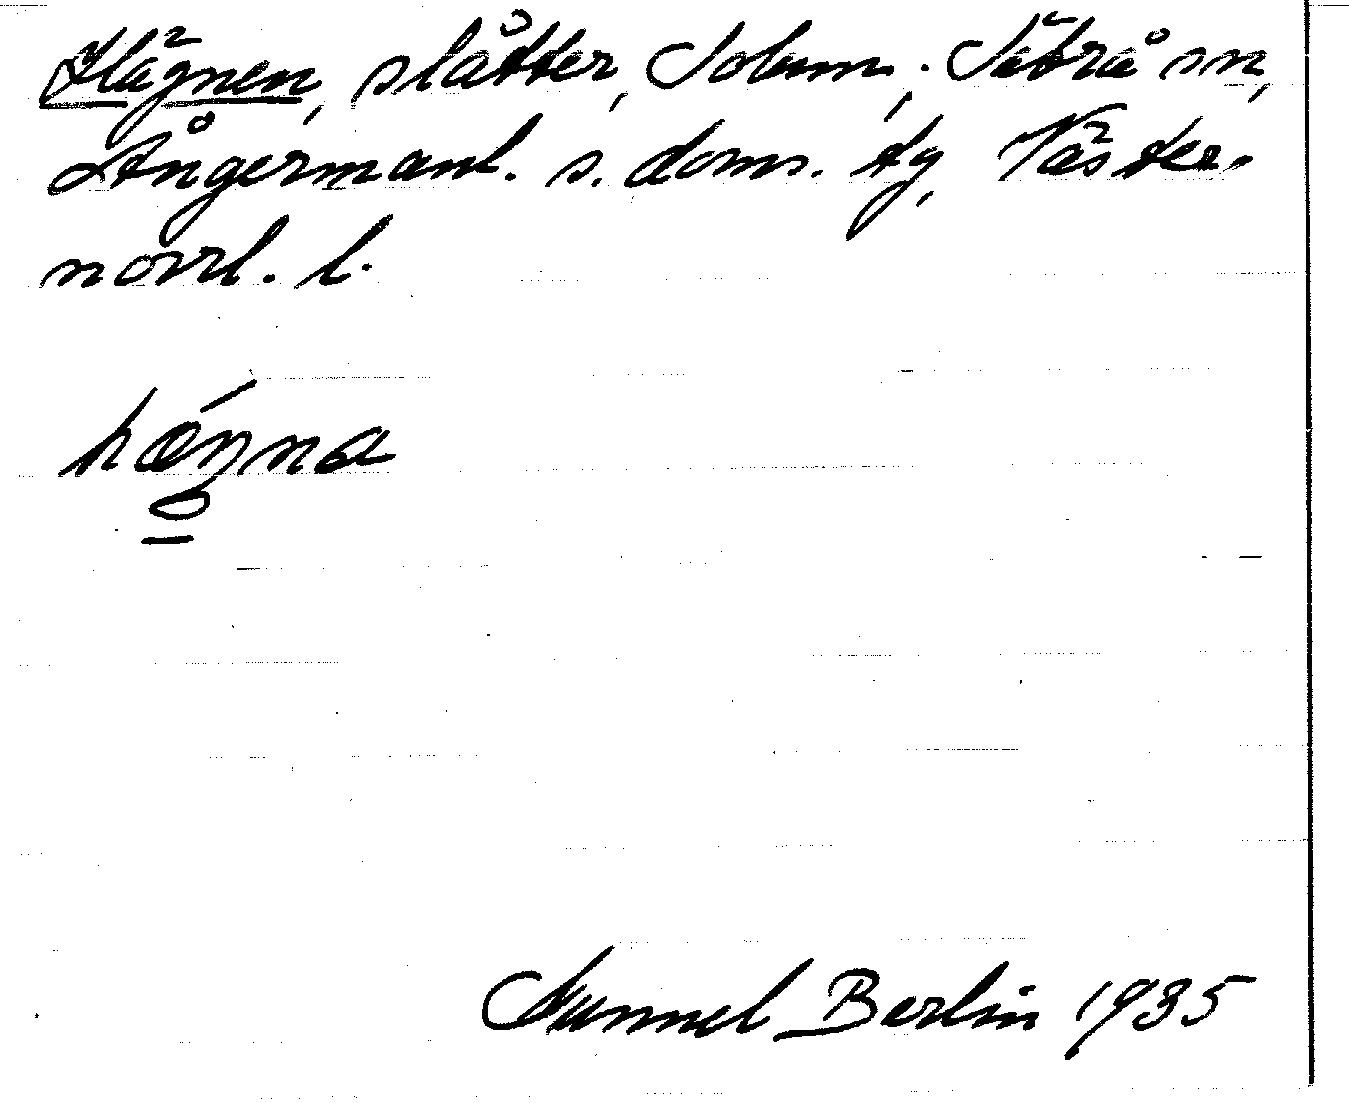 Hägnen, slåtter, Jolum, Säbrå sn,
Ångermanl. s. doms. tg, Väster-
norrl. l.
hǽŋna
Gunnel Berlin 1935